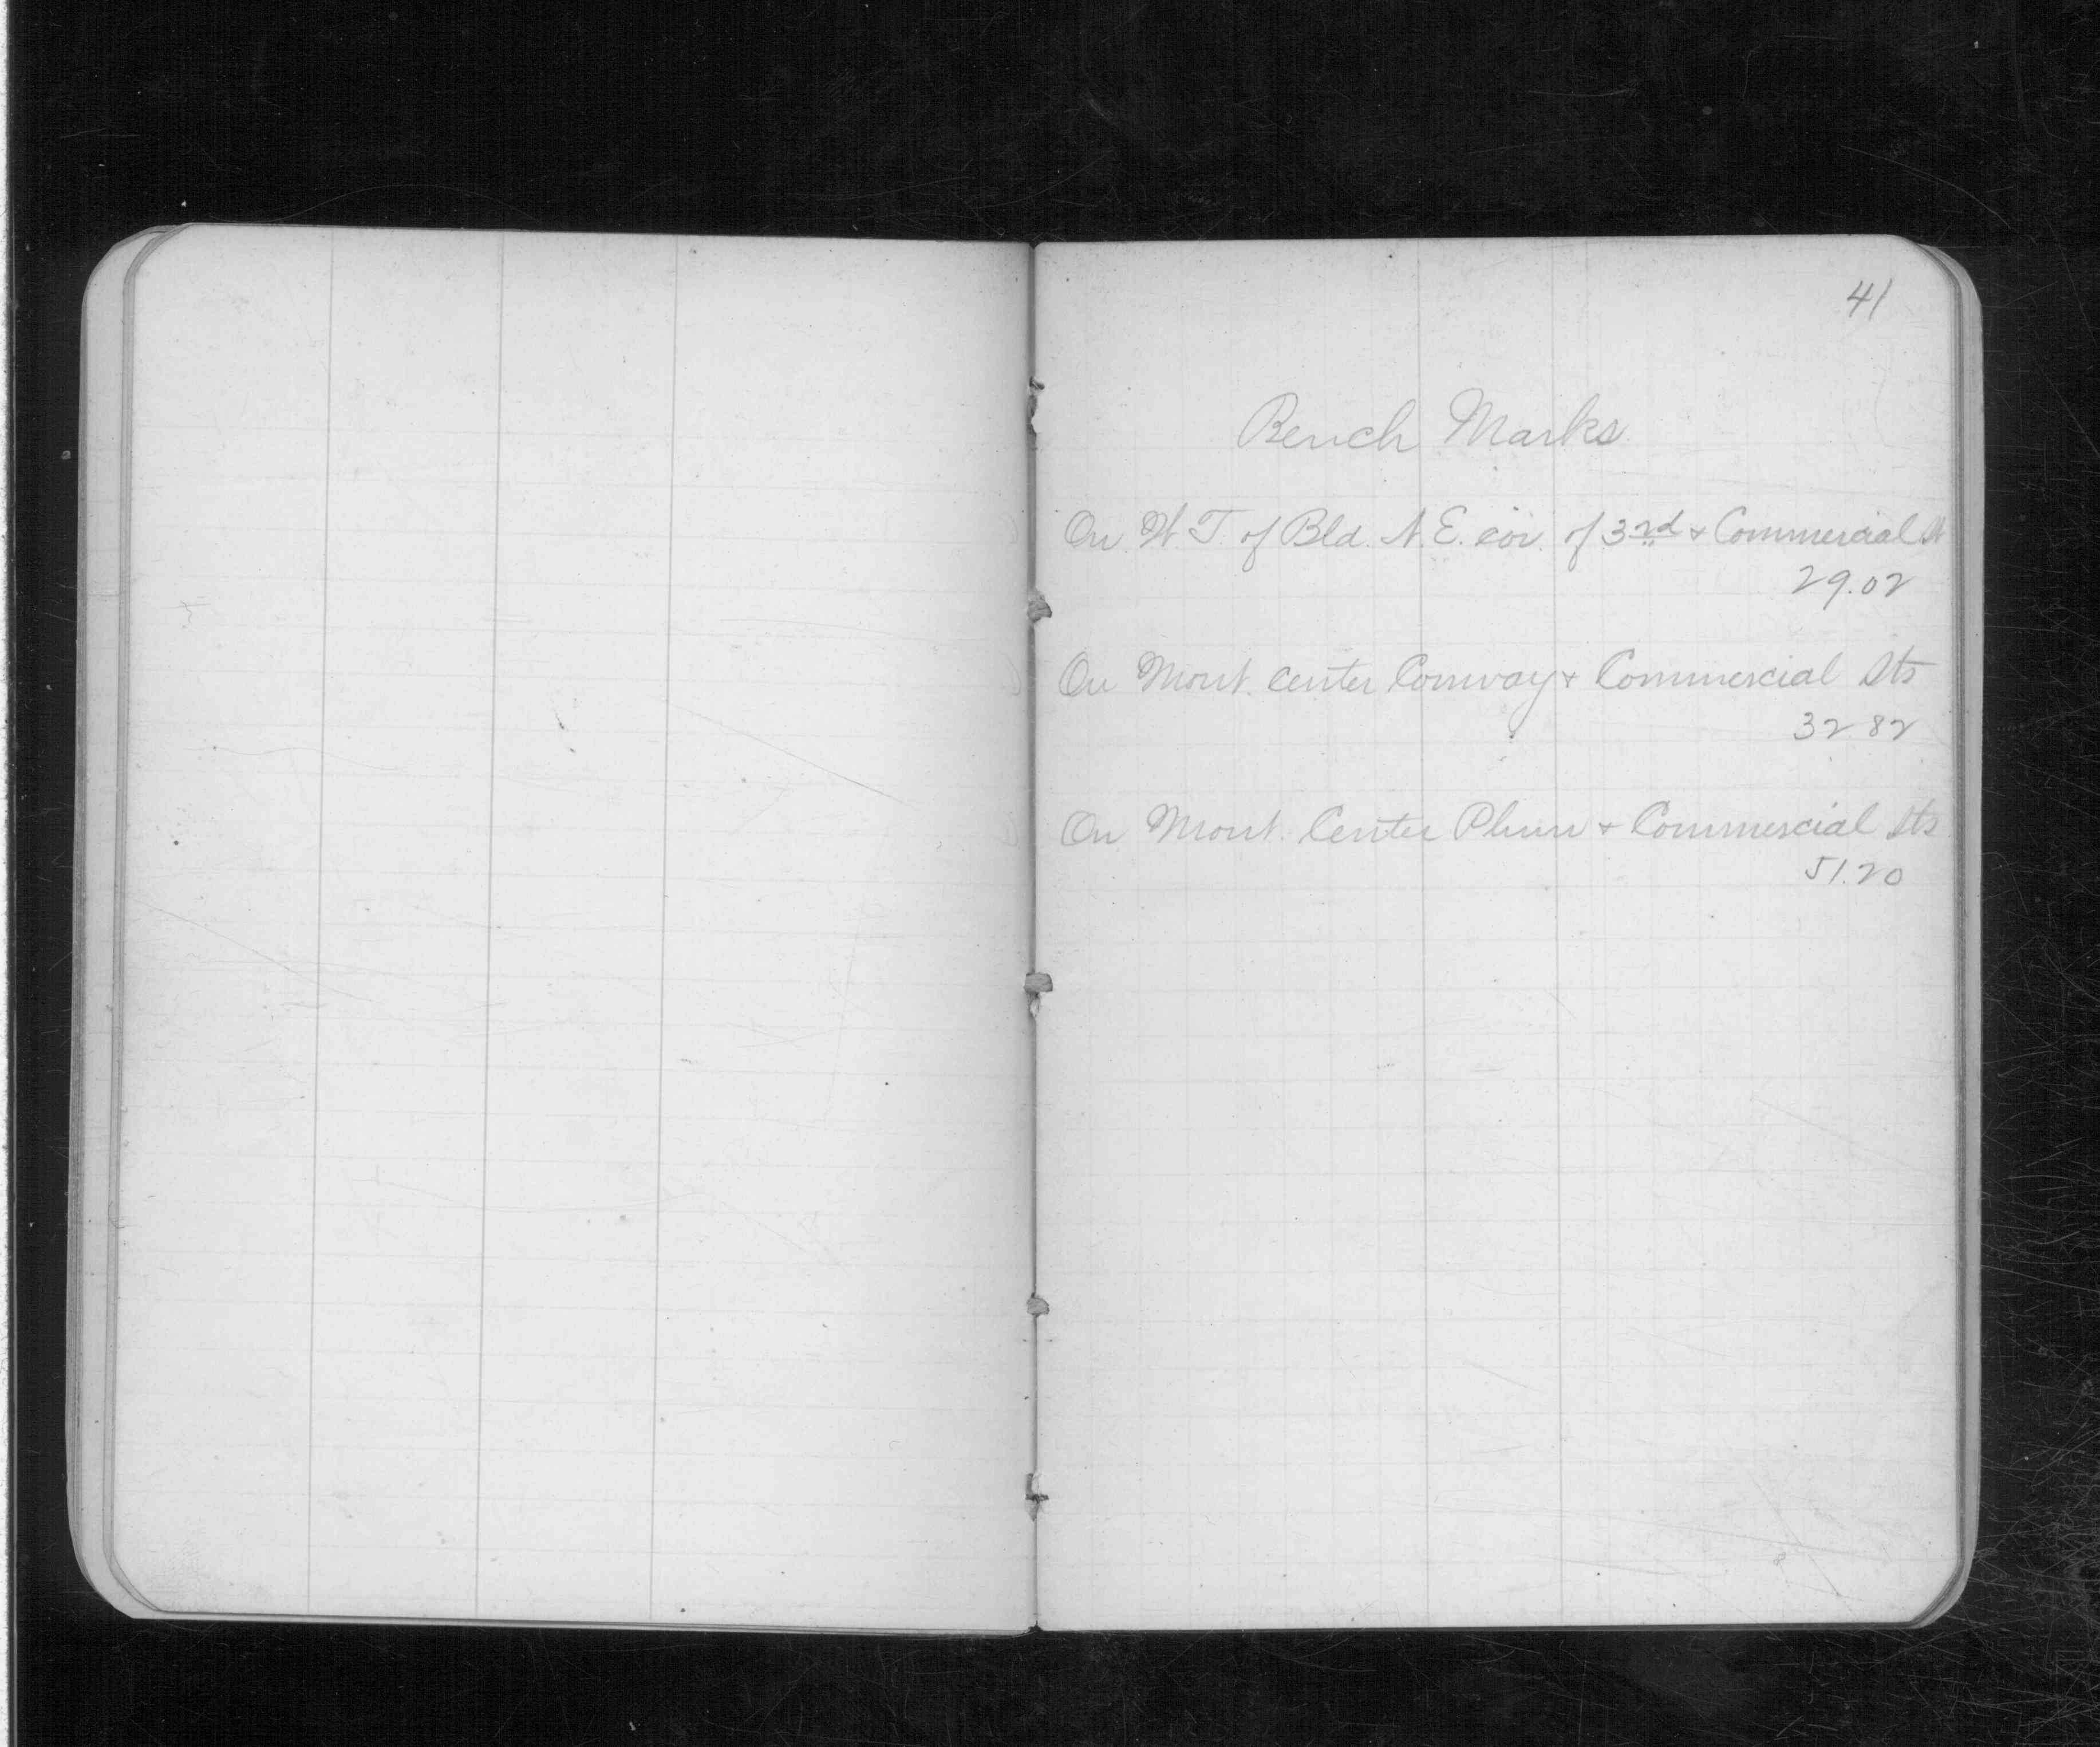 41
Bench Marks
On W. T. of Bld. N. E. cor. of 3rd & Commercial St
29.02
On Mont. Center Conway & Commercial Sts
32 82
On Mont. Center Plum & Commercial Sts
51.20